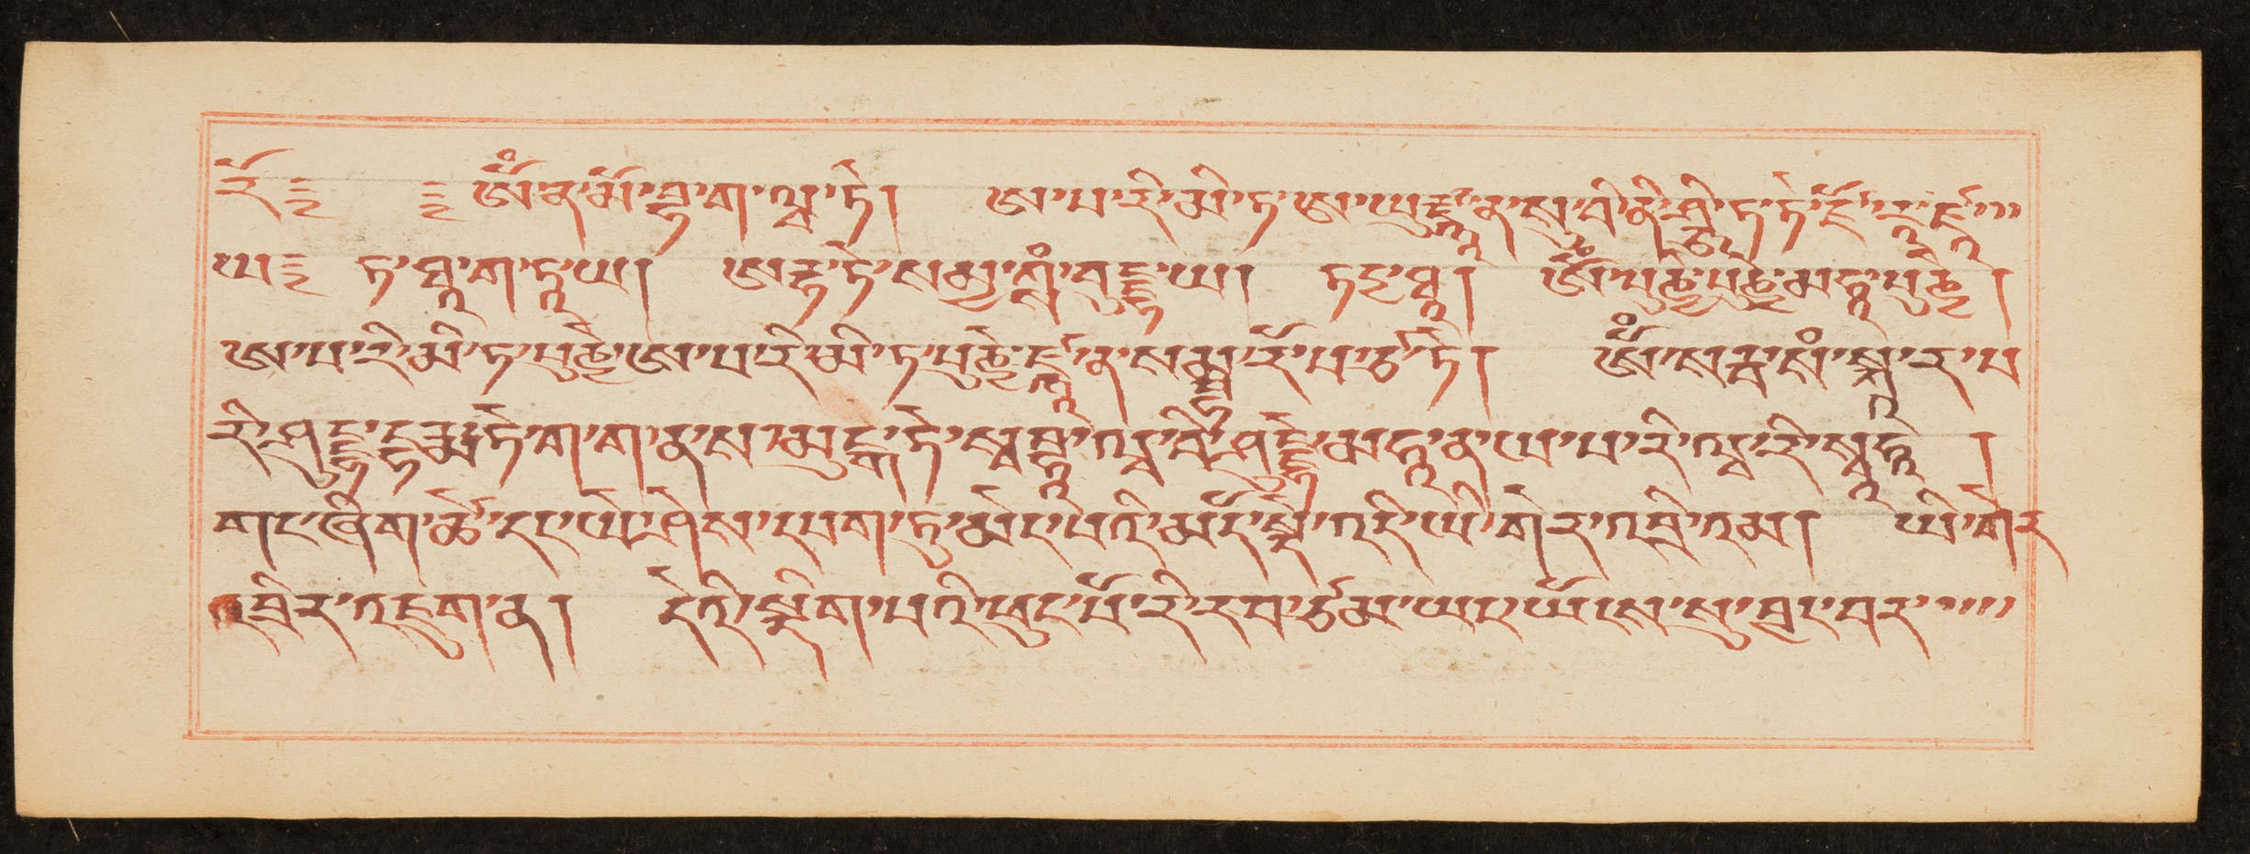 རོ༔ ༔ཨོཾ་ན་མོ་བྷ་ག་ཝ་ཏེ། ཨ་པ་རི་མི་ཏ་ཨ་ཡུརྫྙཱ་ན་སུ་བི་ནི་ཤྩི་ཏ་ཏེ་ཛོ་རཱ་ཛཱ
ཡ༔ ཏ་ཐཱ་ག་ཏཱ་ཡ། ཨརྷ་ཏེ་སམྱཀྶཾ་བུདྡྷ་ཡ། ཏདྱ་ཐཱ། ཨོཾ་པུཎྱེ་པུཎྱེ་མ་ཧཱ་པུཎྱེ།
ཨ་པ་རི་མི་ཏ་པུཎྱེ་ཨ་པ་རི་མི་ཏ་པུཎྱེ་ཛྙཱ་ན་སམྦྷཱ་རོ་པ་ཙ་ཏེ། ཨོཾ་སརྦ་སཾ་སྐཱ་ར་པ
རི་ཤུདྡྷ་དྷརྨ་ཏེ་ག་ག་ན་ས་མུདྒ་ཏེ་སྭ་བྷཱ་ཝ་བི་ཤུདྡྷེ་མ་ཧཱ་ན་ཡ་པ་རི་ཝ་རི་སྭཱ་ཧཱ།
གང་ཞིག་ཚེ་དང་ཡེ་ཤེས་དཔག་ཏུ་མེད་པའི་མདོ་སྡེ་འདི་ཡི་གེར་འབྲི་འམ། ཡི་གེར
འབྲིར་འཇུག་ན། དེའི་སྡིག་པའི་ཕུང་པོ་རི་རབ་ཙམ་ཡང་ཡོངས་སུ་བྱང་བར་